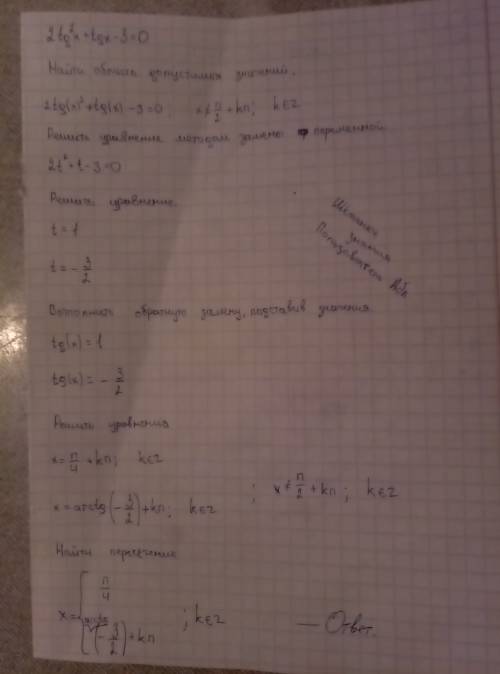 2tg²x+tgx-3=0
Найти область допустимых значений.
2tg(x)²+tg(x)-3=0; x≠π/2+kπ; k∈z
Решить уравнение методом замены переменной.
2t²+t-3=0
Решить уравнение.
t=1
t=-3/2
знания
Пользователь
обратную замену, подставив значения.
tg(x)=1
tg(x)=-3/2
Решить уравнения
x=π/4+kπ; k∈z
x=arctg(-3/2)+kπ; k∈z ; x≠π/2+kπ; k∈z
Найти пересечение
x={π/4
(-3/2)+kπ ; k∈z — Ответ.